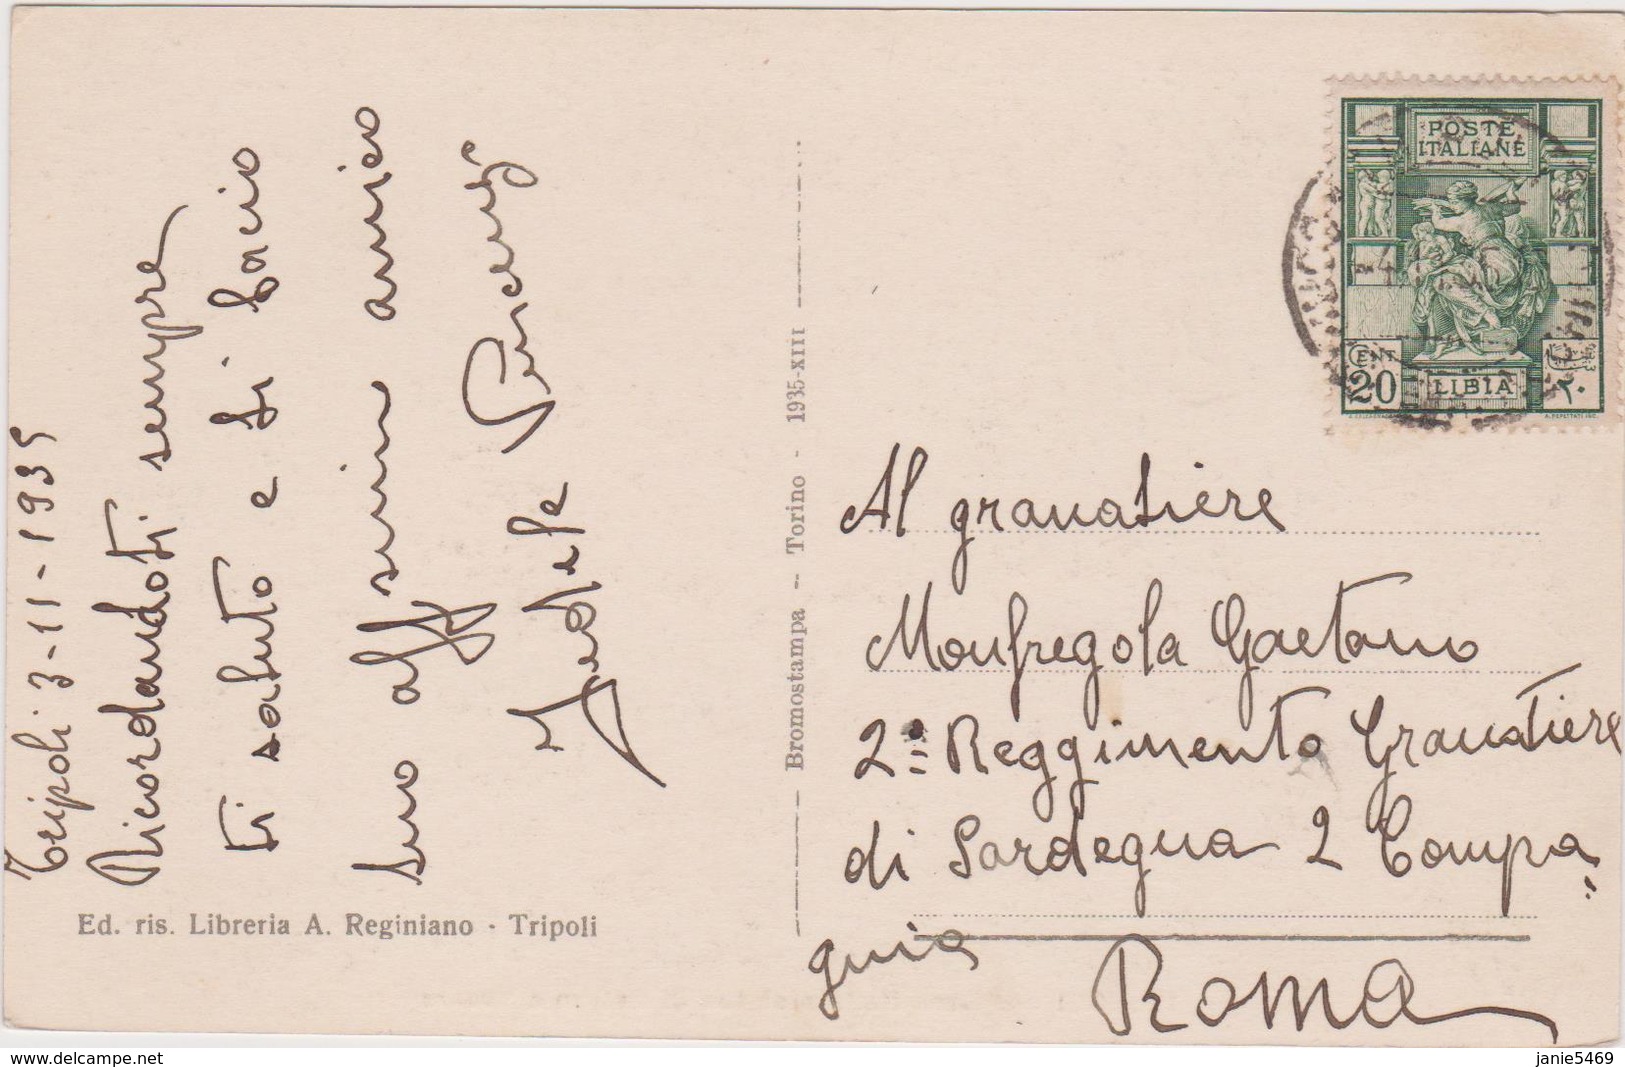 Tripoli 3-11-1935
Ricordandoti sempre
ti saluto e ti bacio
tuo aff simi amico
Ed. ris. Libreria A. Reginiano - Tripoli
Bromostampa -- Torino - 1935-XIII
POSTE
ITALIANE
CENT
20
LIBIA
٢٠
Al granatiere
Monfregola Gaetano
2º Reggimento Granatiere
di Sardegna 2 Compa=
gnia
ROMA
www.delcampe.net
janie5469